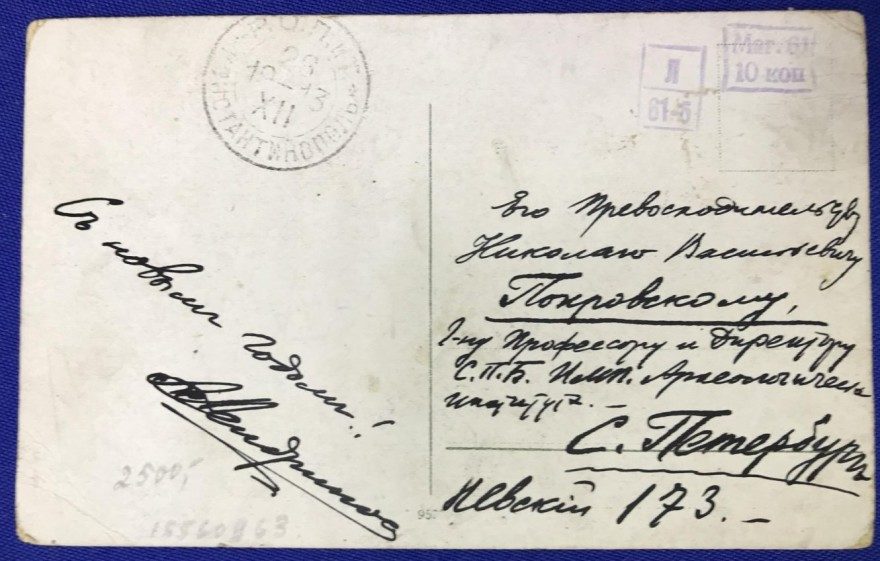 Р.О.П.иТ.
26
XII
КОНСТАНТИНОПОЛЬ
Л
61-5
Маг. 61
10 коп
Съ новымъ годомъ!
Его Превосходительству
Николаю Васильевичу
Покровскому,
Г-ну Профессору и Директору
С.П.Б. Имп. Археологическ
Института. —
С. Петербургъ
Невскій 173. —
2500,-
15560863
95